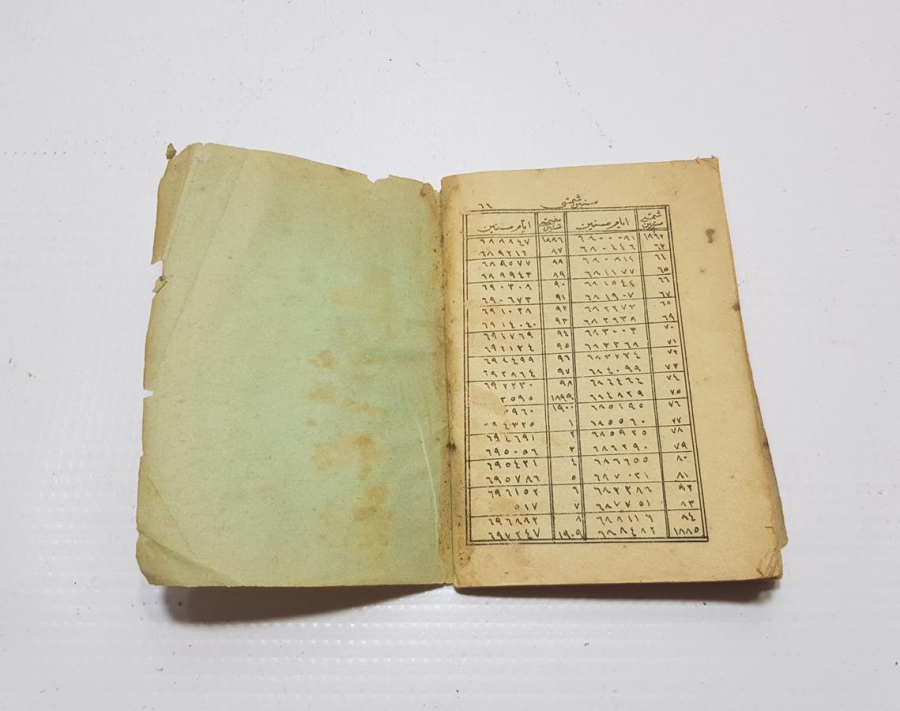 سنين شمسى ٦٦
شمسى سنين ايام سنين شمسى سنين ايام سنين
١٨٦٢ ٦٨٠٠٨١ ١٨٨٦ ٦٨٨٨٤٧
٦٣ ٦٨٠٤٤٦ ٨٧ ٦٨٩٢١٢
٦٤ ٦٨٠٨١١ ٨٨ ٦٨٩٥٧٧
٦٥ ٦٨١١٧٧ ٨٩ ٦٨٩٩٤٣
٦٦ ٦٨١٥٤٢ ٩٠ ٦٩٠٣٠٨
٦٧ ٦٨١٩٠٧ ٩١ ٦٩٠٦٧٣
٦٨ ٦٨٢٢٧٢ ٩٢ ٦٩١٠٣٨
٦٩ ٦٨٢٦٣٨ ٩٣ ٦٩١٤٠٤
٧٠ ٦٨٣٠٠٣ ٩٤ ٦٩١٧٦٩
٧١ ٦٨٣٣٦٨ ٩٥ ٦٩٢١٣٤
٧٢ ٦٨٣٧٣٤ ٩٦ ٦٩٢٤٩٩
٧٣ ٦٨٤٠٩٩ ٩٧ ٦٩٢٨٦٤
٧٤ ٦٨٤٤٦٤ ٩٨ ٦٩٣٢٣٠
٧٥ ٦٨٤٨٢٩ ١٨٩٩ ٣٥٩٥
٧٦ ٦٨٥١٩٥ ١٩٠٠ ٠٩٦٠
٧٧ ٦٨٥٥٦٠ ١ ٩٤٣٢٥
٧٨ ٦٨٥٩٢٥ ٢ ٦٩٤٦٩١
٧٩ ٦٨٦٢٩٠ ٣ ٦٩٥٠٥٦
٨٠ ٦٨٦٦٥٥ ٤ ٦٩٥٤٢١
٨١ ٦٨٧٠٢١ ٥ ٦٩٥٧٨٦
٨٢ ٦٨٧٣٨٦ ٦ ٦٩٦١٥٢
٨٣ ٦٨٧٧٥١ ٧ ٥١٧
٨٤ ٦٨٨١١٦ ٨ ٦٩٦٨٨٢
١٨٨٥ ٦٨٨٤٨٢ ١٩٠٩ ٦٩٧٢٤٧